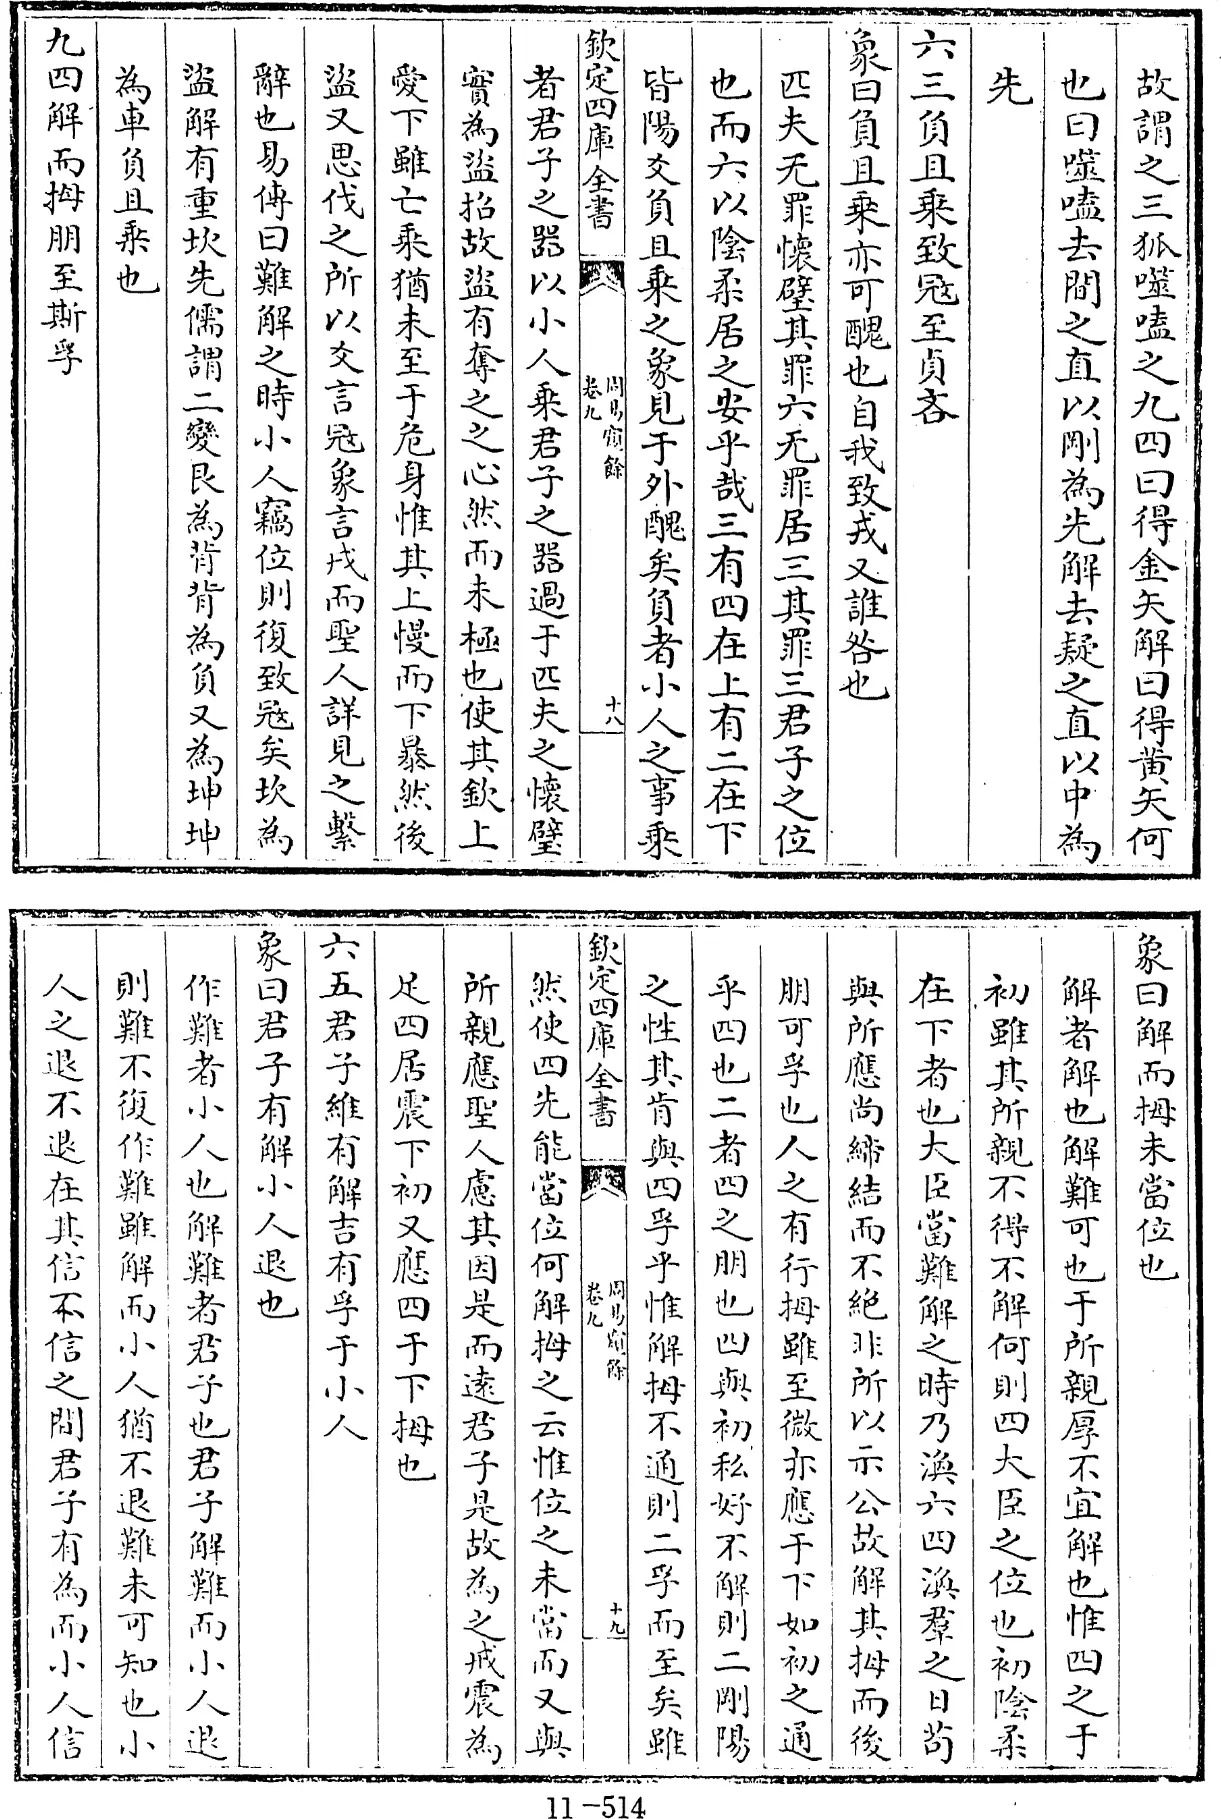 故謂之三狐噬嗑之九四曰得金矢解曰得黄矢何
也曰噬嗑去間之直以剛為先解去疑之直以中為
先
六三負且乘致冦至貞吝
象曰負且乘亦可醜也自我致戎又誰咎也
匹夫无罪懷璧其罪六无罪居三其罪三君子之位
也而六以陰柔居之安乎哉三有四在上有二在下
皆陽爻負且乘之象見于外醜矣負者小人之事乘
欽定四庫全書
周易窺餘
卷九
十八
者君子之器以小人乘君子之器過于匹夫之懷璧
實為盜招故盜有奪之之心然而未極也使其欽上
愛下雖亡乘猶未至于危身惟其上慢而下暴然後
盜又思伐之所以爻言冦象言戎而聖人詳見之繫
辭也易傳曰難解之時小人竊位則復致冦矣坎為
盜解有重坎先儒謂二變艮為背背為負又為坤坤
為車負且乘也
九四解而拇朋至斯孚
象曰解而拇未當位也
解者解也解難可也于所親厚不宜解也惟四之于
初雖其所親不得不解何則四大臣之位也初陰柔
在下者也大臣當難解之時乃渙六四渙羣之日茍
與所應尚締結而不絕非所以示公故解其拇而後
朋可孚也人之有行拇雖至微亦應于下如初之通
乎四也二者四之朋也四與初私好不解則二剛陽
之性其肯與四孚乎惟解拇不通則二孚而至矣雖
欽定四庫全書
周易窺餘
卷九
十九
然使四先能當位何解拇之云惟位之未當而又與
所親應聖人慮其因是而遠君子是故為之戒震為
足四居震下初又應四于下拇也
六五君子維有解吉有孚于小人
象曰君子有解小人退也
作難者小人也解難者君子也君子解難而小人退
則難不復作難雖解而小人猶不退難未可知也小
人之退不退在其信不信之間君子有為而小人信
11-514